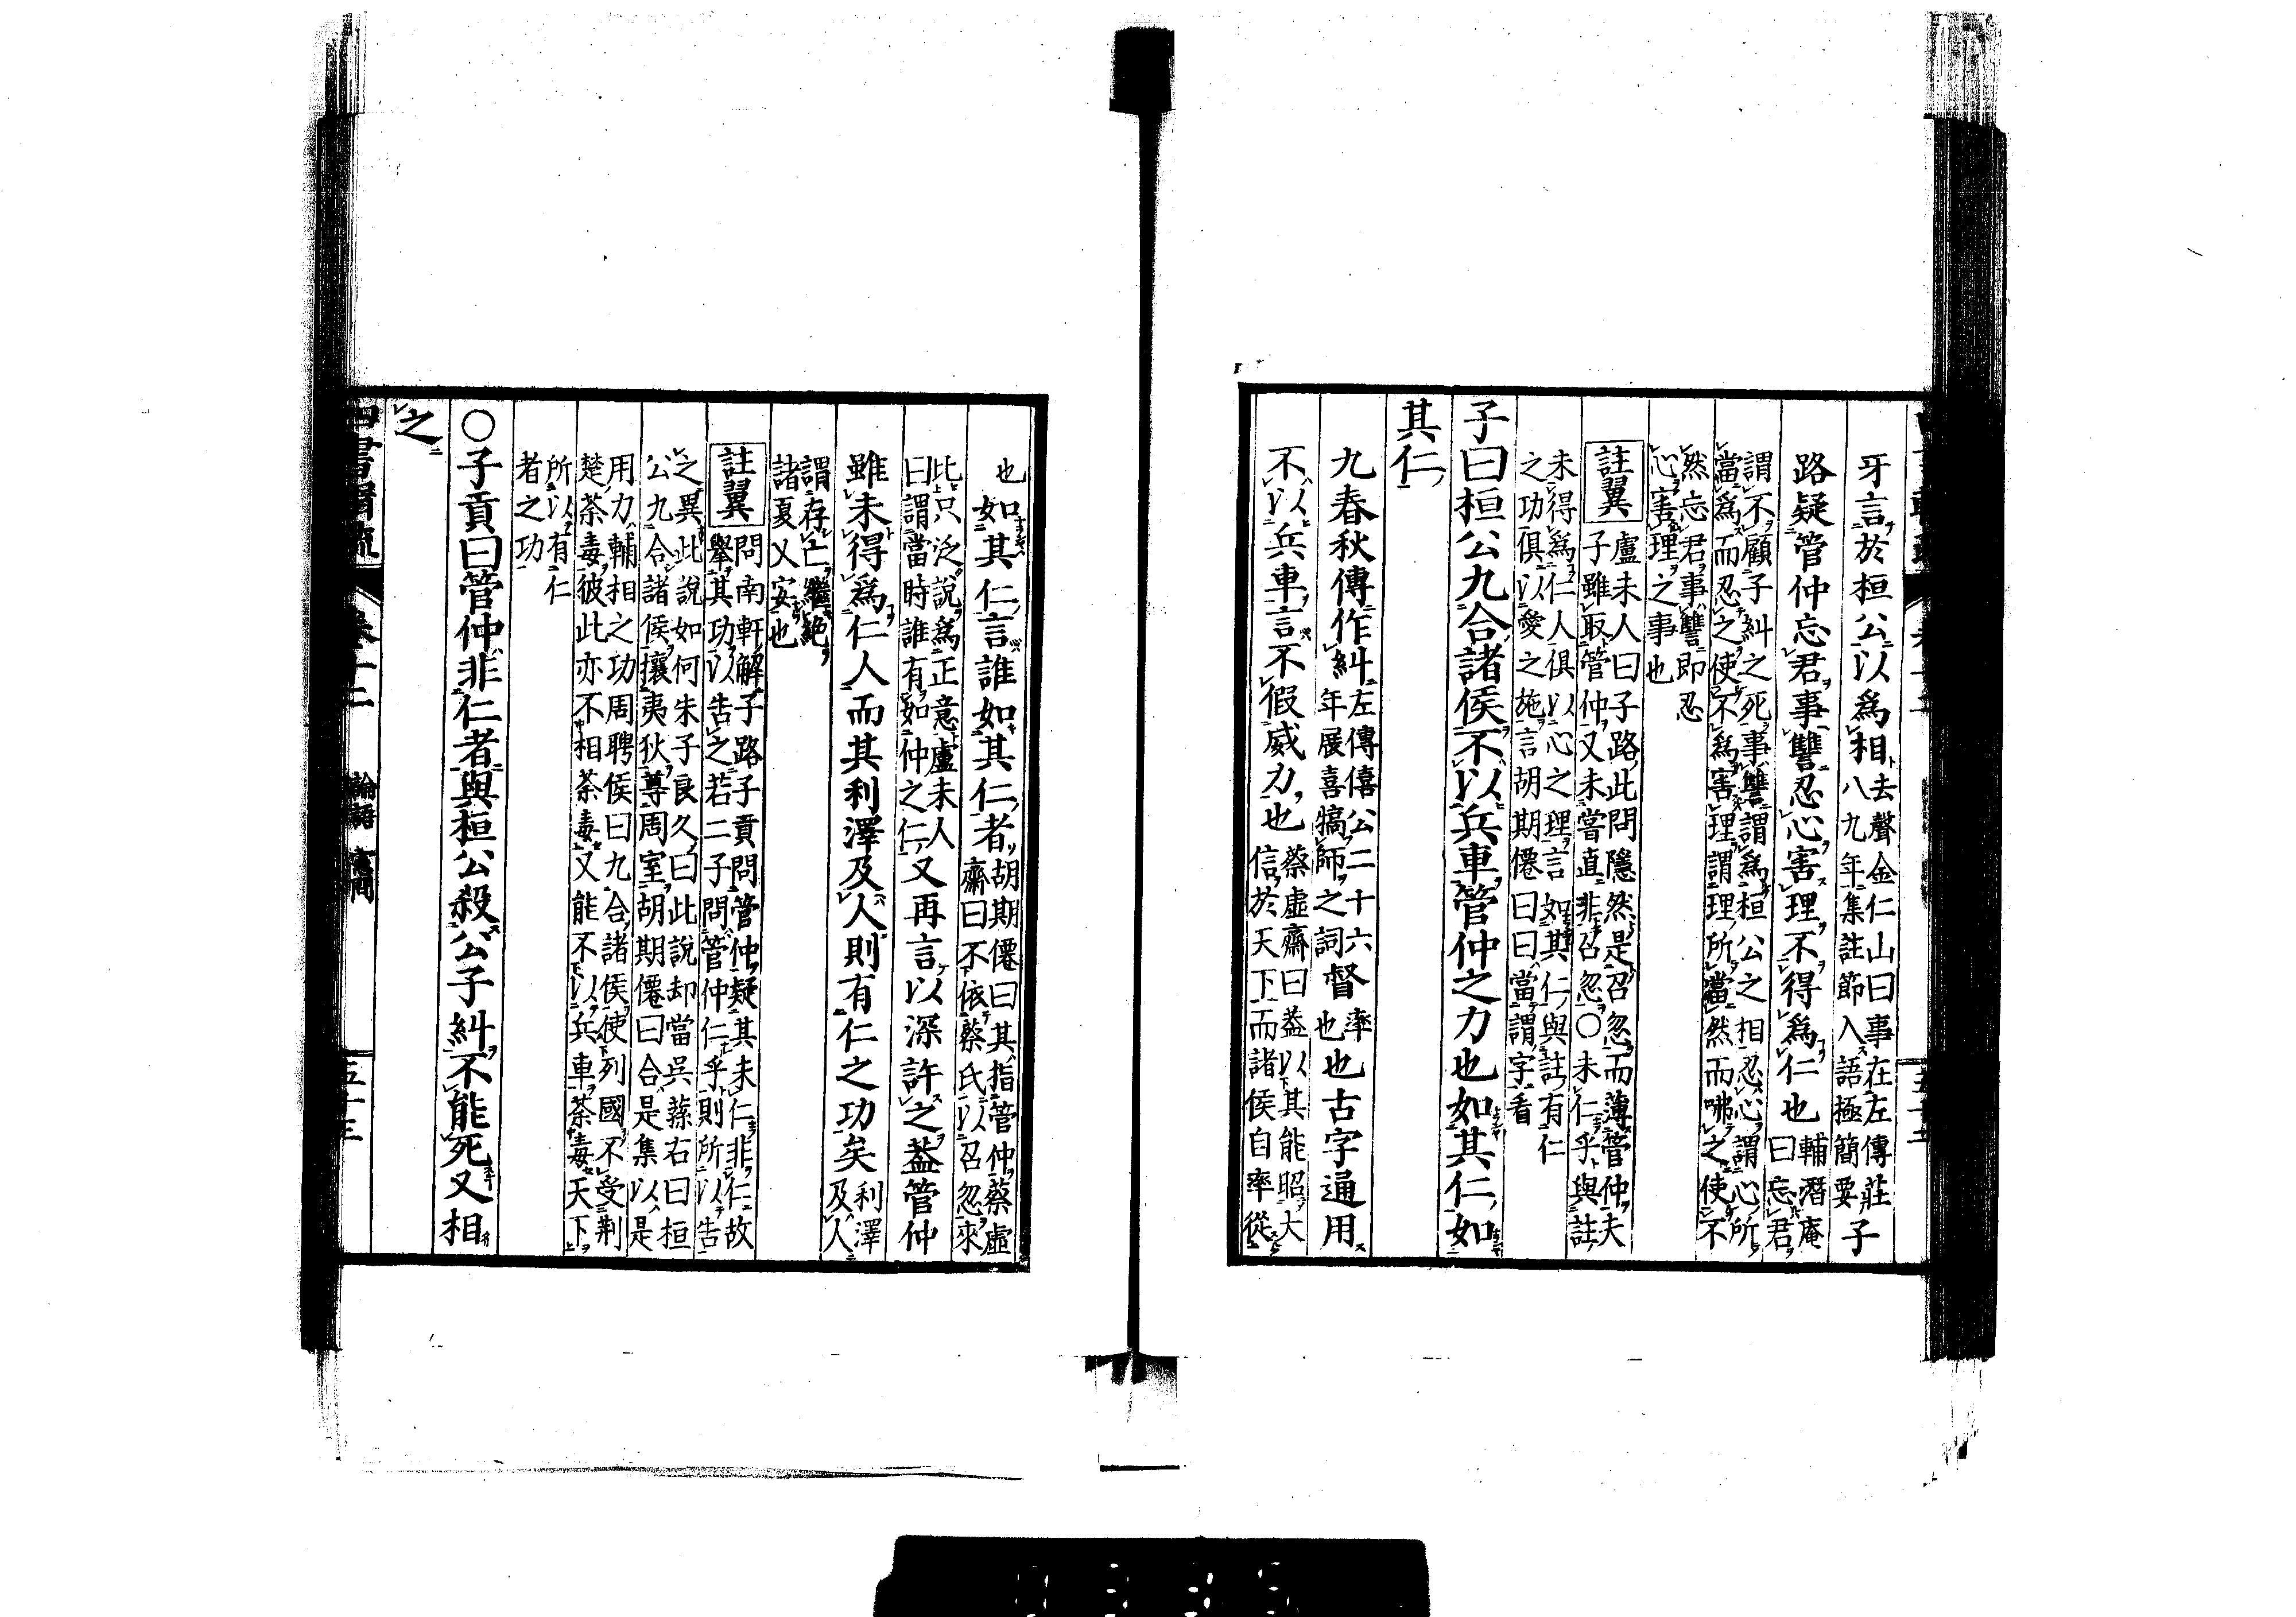 牙言於桓公以爲相去聲金仁山曰事在左傳莊
八九年集註節入語極簡要子
路疑管仲忘君事讐忍心害理不得爲仁也輔潛庵
曰忘君
謂不顧子糾之死事讐謂爲桓公之相忍心謂心所
當爲而忍之使不爲害理謂理所當然而咈之使不
然忘君事讐即忍
心害理之事也
註翼
盧未人曰子路此問隱然是召忽而薄管仲夫
子雖取管仲又未嘗直非召忽○未仁乎與註
未得爲仁人俱以心之理言如其仁與註有仁
之功俱以愛之施言胡期僊曰曰當謂字看
子曰桓公九合諸侯不以兵車管仲之力也如其仁如
其仁
九春秋傳作糾左傳僖公二十六
年展喜犒師之詞督率
也也古字通用
不以兵車言不假威力也蔡虛齋曰蓋以其能昭大
信於天下而諸侯自率從
也如其仁言誰如其仁者胡期僊曰其指管仲蔡虛
齋曰不依蔡氏以召忽來
此只泛說爲正意盧未人
曰謂當時誰有如仲之仁又再言以深許之蓋管仲
雖未得爲仁人而其利澤及人則有仁之功矣利澤
及人
謂存亡繼絶
諸夏乂安也
註翼
問南軒解子路子貢問管仲疑其未仁非仁故
舉其功以告之若二子問管仲仁乎則所以告
之異此說如何朱子良久曰此說却當吳蓀右曰桓
公九合諸侯攘夷狄尊周室胡期僊曰合是集以是
用力輔相之功周聘侯曰九合諸侯使列國不受荆
楚荼毒彼此亦不相荼毒又能不以兵車荼毒天下
所以有仁
者之功
○子貢曰管仲非仁者與桓公殺公子糾不能死又相
之
卷十二 論語 憲問 五十三